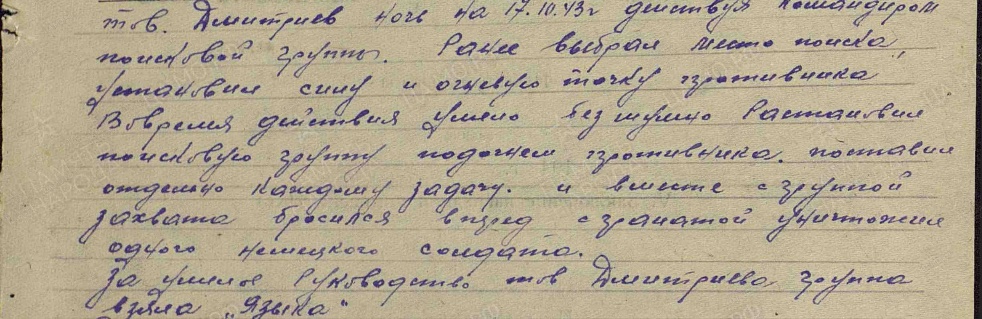 тов. Дмитриев ночь на 17.10.43г действуя командиром
поисковой группы. Ранее выбрал место поиска,
установил силу и огневую точку противника
Вовремя действия умело безшумно Растановил
поисковую группу подогнем противника. поставил
отдельно каждому задачу. и вместе с группой
захвата бросился вперед с гранатой уничтожил
одного немецкого солдата.
За умелое Руководство тов Дмитриева группа
взяла „Языка"